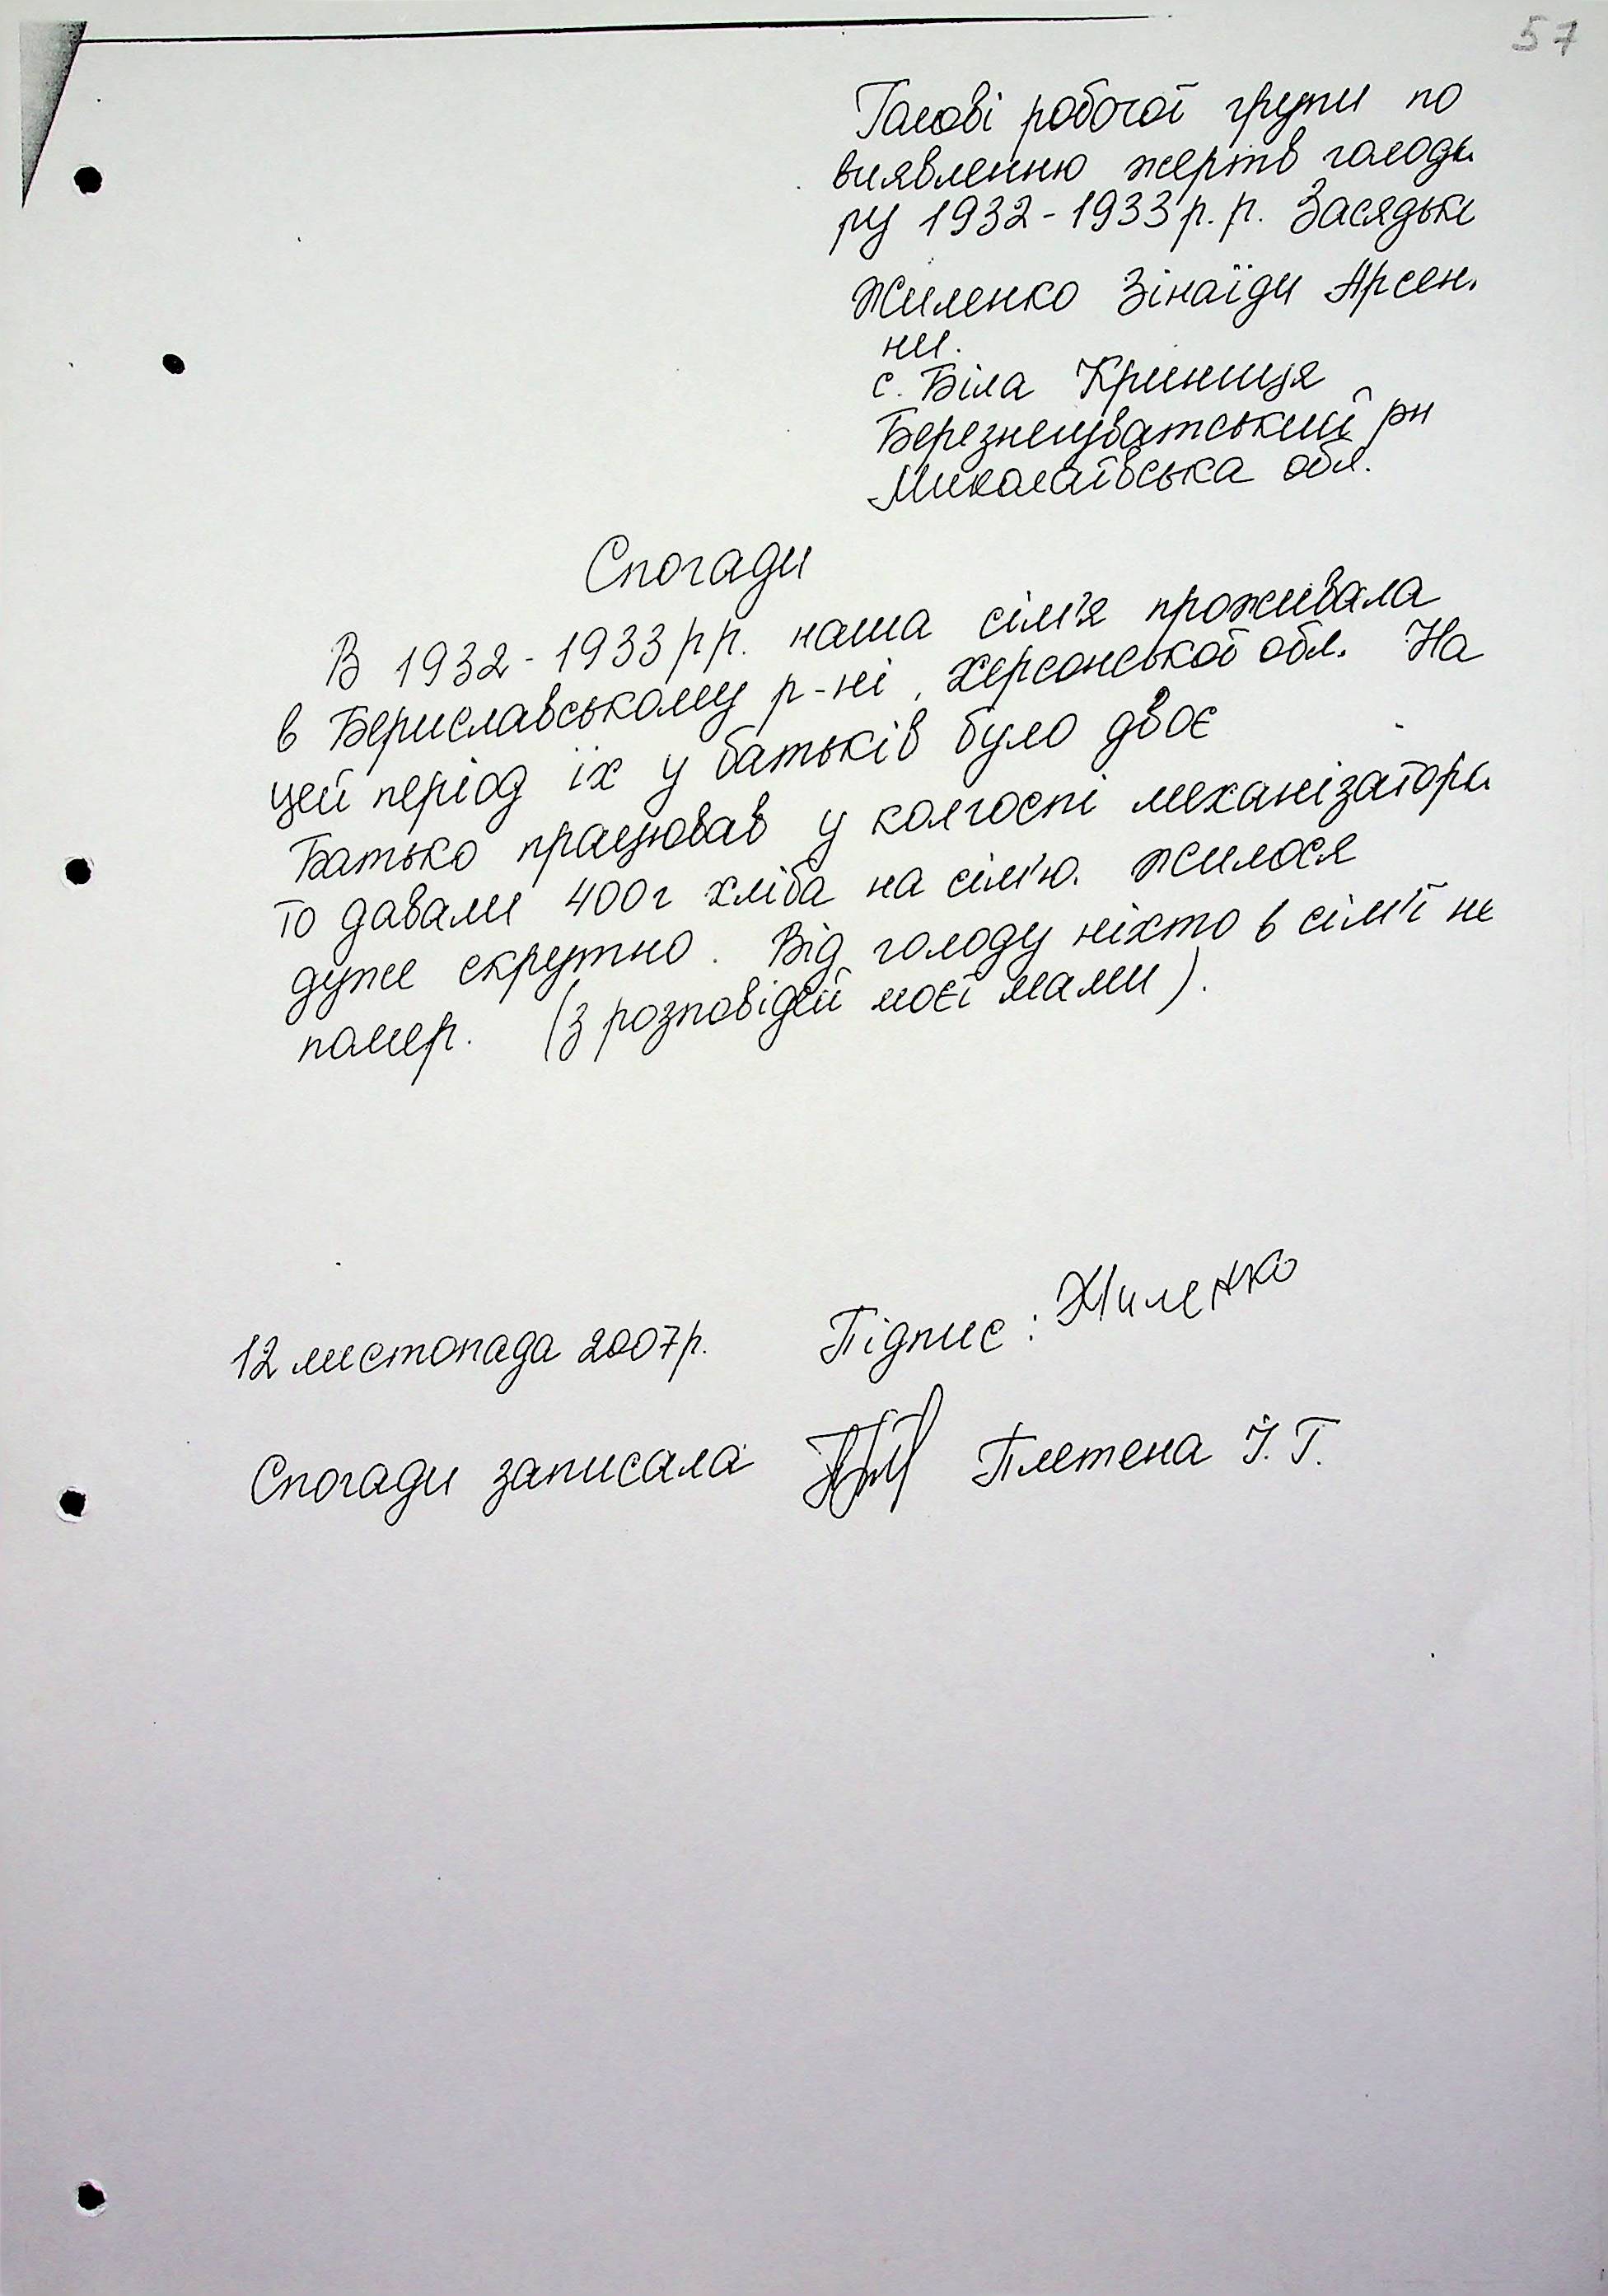 57
Голові робочої групи по
виявленню жертв голодо
ру 1932-1933р.р. Засядько
Жиленко Зінаїди Арсен.
ни.
с. Біла Криниця
Березнегуватський рн
Миколаївська обл.
Спогади
В 1932-1933рр. наша сім'я проживала
в Бериславському р-ні, Херсонської обл. На
цей період їх у батьків було двоє
Батько працював у колгоспі механізатора
то давали 400г хліба на сім'ю. Жилося
дуже скрутно. Від голоду ніхто в сім'ї не
помер. (з розповідей моєї мами).
12 листопада 2007р. Підпис: Жиленко
Спогади записала Плетена І. Г.